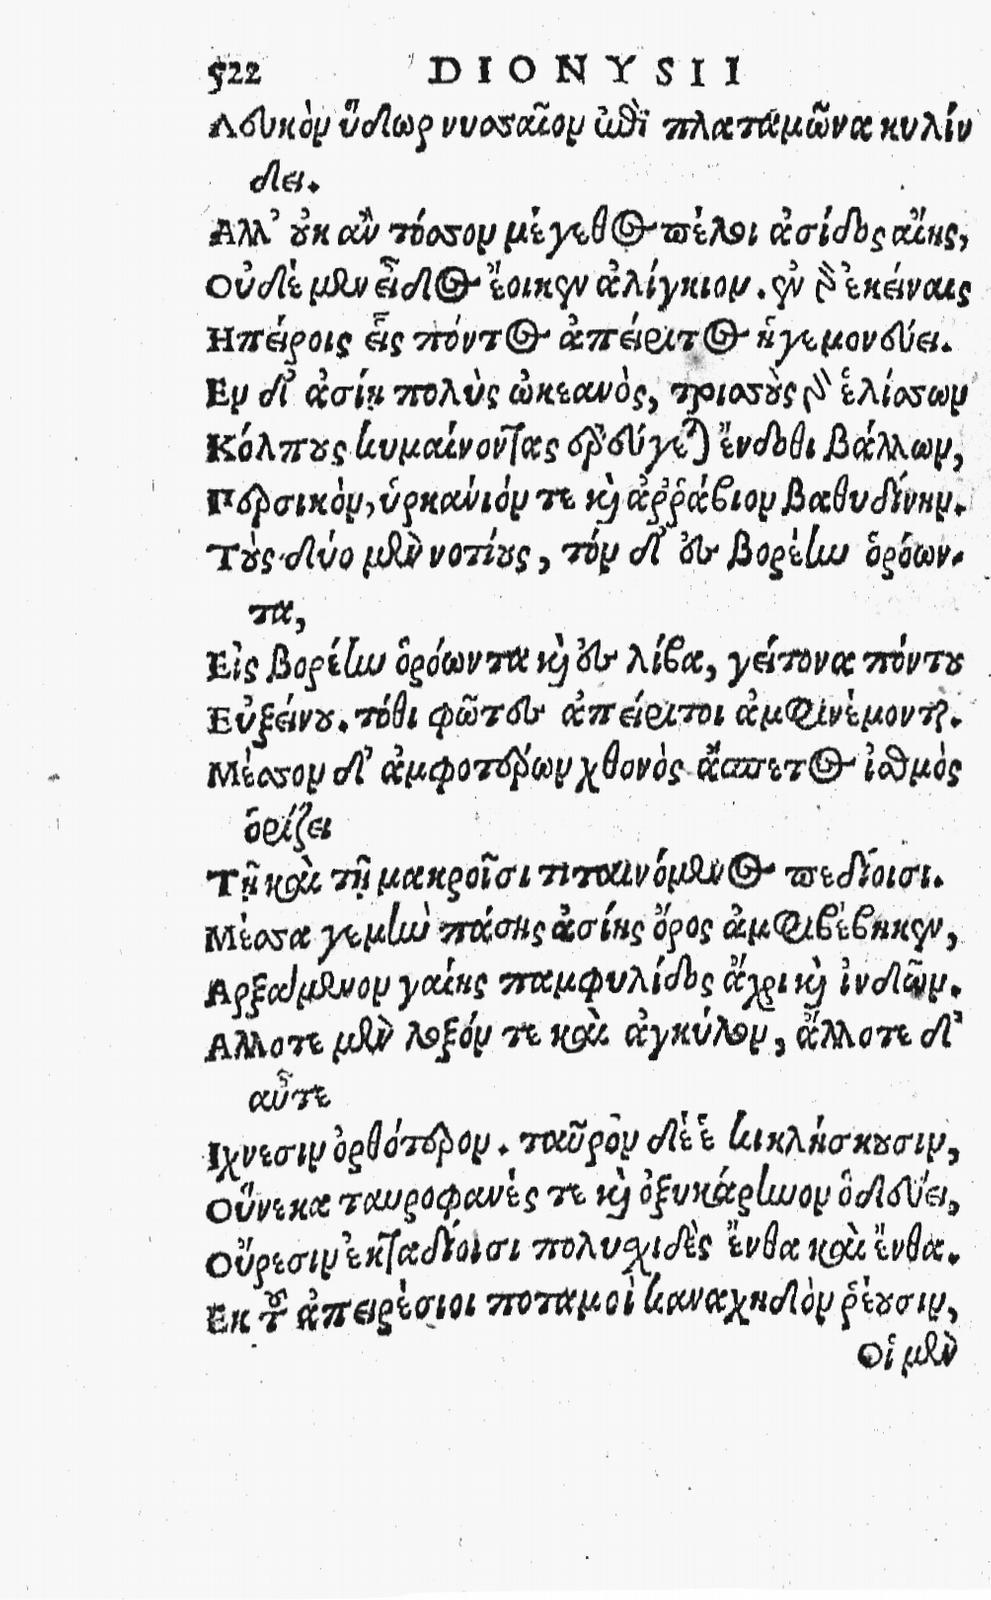 522 DIONYSII
Λευκὸν ὕδωρ νυσσαῖον ἐπὶ πλαταμῶνα κυλίν
δει.
Αλλ' οὐκ ἂν τόσσον μέγεθος πέλοι ἀσίδος αἴης,
Οὐδὲ μὲν εἶδος ἔοικεν ἀλίγκιον. ἐν γὰρ ἐκείναις
Ηπείροις εἷς πόντος ἀπείριτος ἡγεμονεύει.
Εν δ' ἀσίῃ πολὺς ὠκεανὸς, τρισσοὺς γὰρ ἑλίσσων
Κόλπους κυμαίνοντας ἐρεύγεται ἔνδοθι βάλλων,
Περσικὸν, ὑρκάνιόν τε καὶ ἀῤῥάβιον βαθυδίνην.
Τοὺς δύο μὲν νοτίους, τόν δ' ἐς βορέην ὁρόων-
τα,
Εἰς βορέην ὁρόωντα καὶ ἐς λίβα, γείτονα πόντου
Εὐξείνου. τόθι φῶτες ἀπείριτοι ἀμφινέμονται.
Μέσσον δ' ἀμφοτέρων χθονὸς ἄσπετος ἰσθμὸς
ὁρίζει
Τῇ καὶ τῇ μακροῖσι τιταινόμενος πεδίοισι.
Μέσσα γεμὴν πάσης ἀσίης ὄρος ἀμφιβέβηκεν,
Αρξάμενον γαίης παμφυλίδος ἄχρι καὶ ἰνδῶν.
Αλλοτε μὲν λοξόν τε καὶ ἀγκύλον, ἄλλοτε δ'
αὖτε
Ιχνεσιν ὀρθότερον. ταῦρον δέ ἑ κικλήσκουσιν,
Οὕνεκα ταυροφανές τε καὶ ὀξυκάρηνον ὁδεύει,
Οὔρεσιν ἐκταδίοισι πολυσχιδὲς ἔνθα καὶ ἔνθα.
Εκ τοῦ ἀπειρέσιοι ποταμοὶ καναχηδὸν ῥέουσιν,
Οἱ μὲν